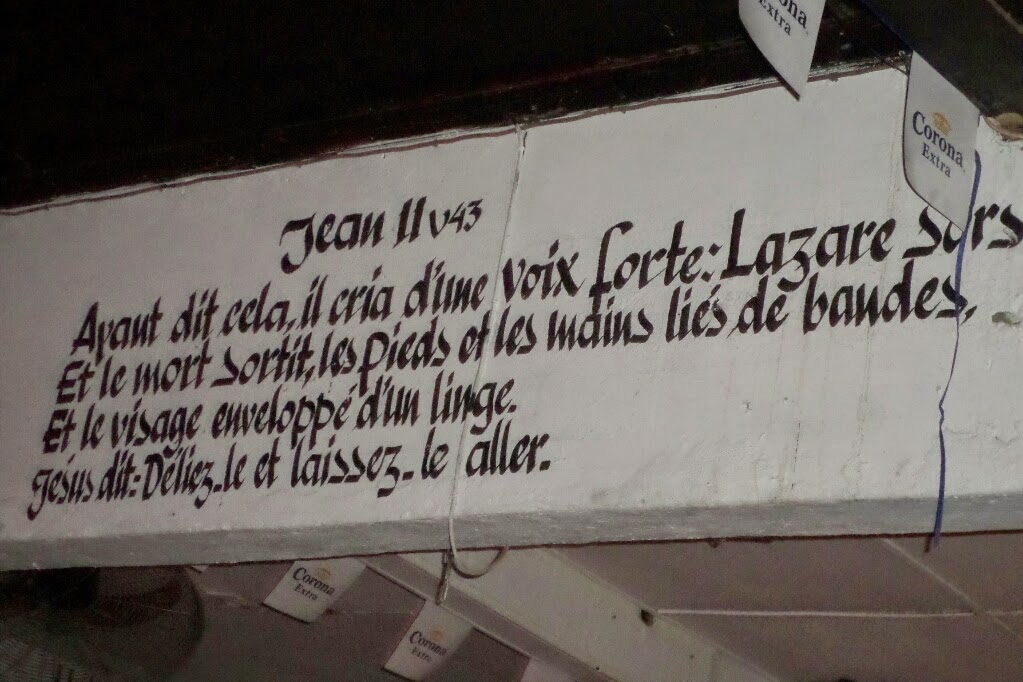 ona
Extra
Corona
Extra
Jean 11 v43
Ayant dit cela, il cria d'une voix forte: Lazare Sors
Et le mort sortit, les pieds et les mains liés de bandes,
Et le visage enveloppé d'un linge.
Jésus dit: Déliez-le et laissez-le aller.
Corona
Extra
Corona
Extra